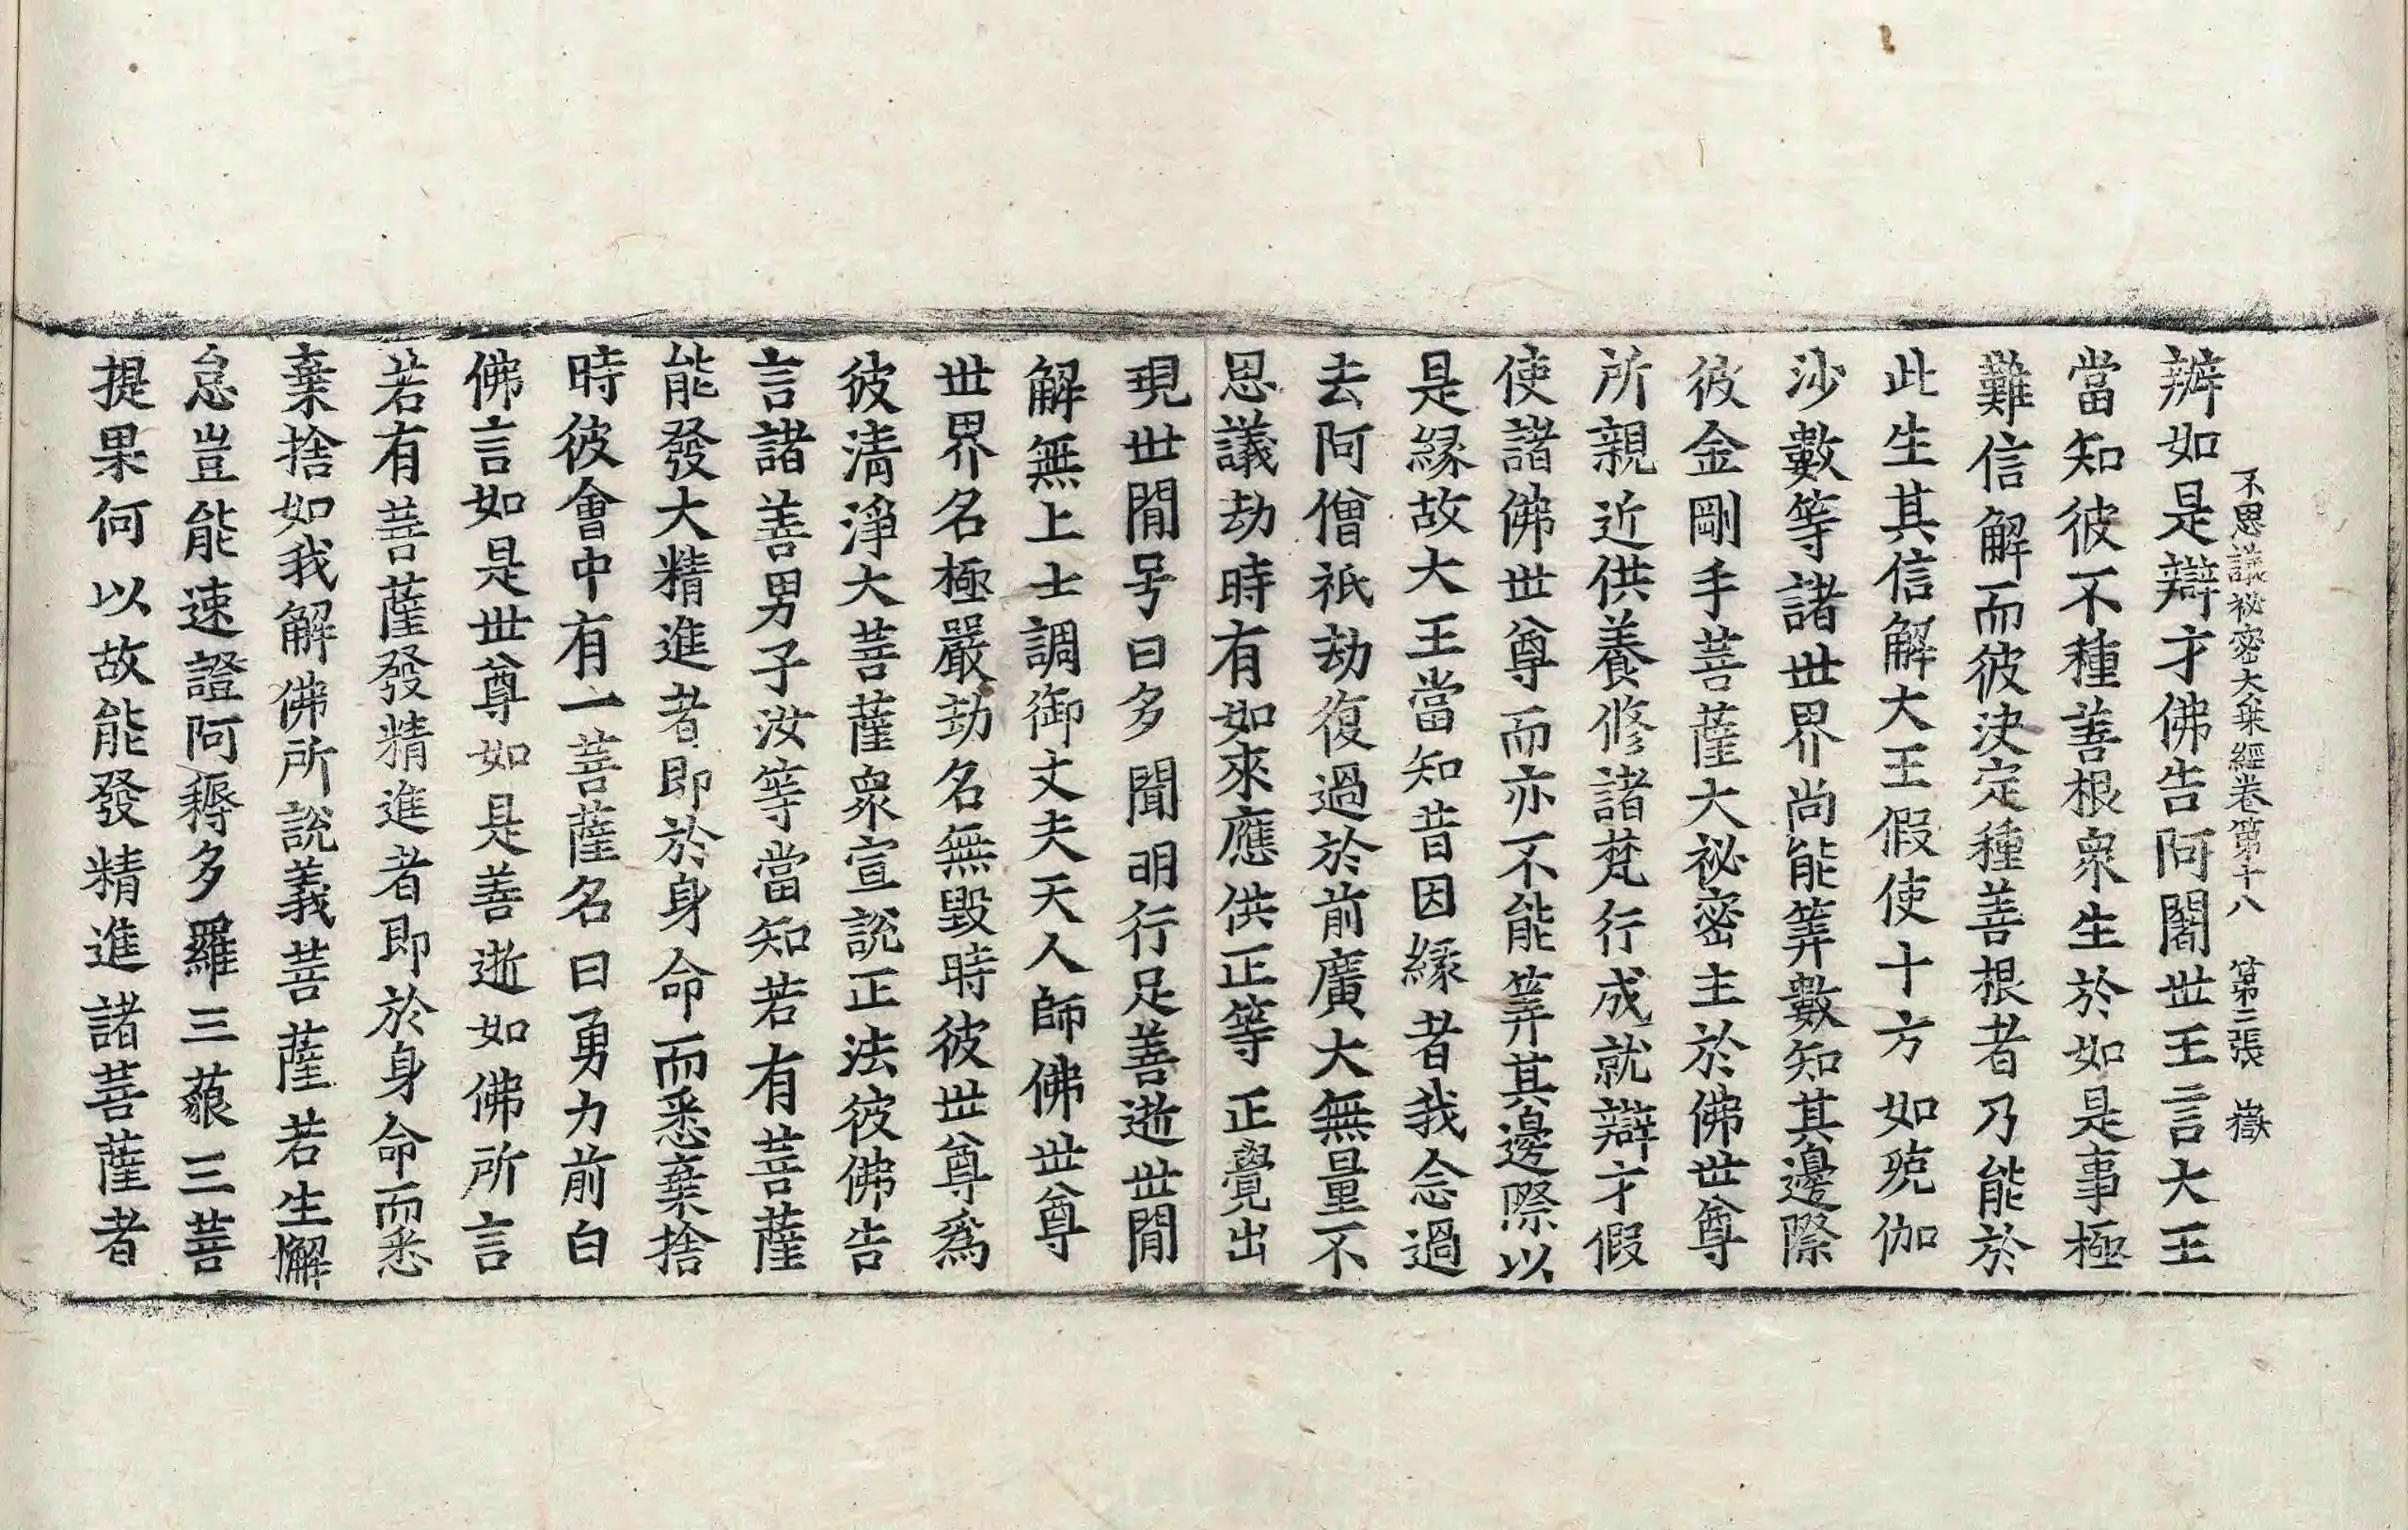 不思議祕密大乗經卷第十八 第二張 嶽
辦如是辯才佛告阿闍世王言大王
當知彼不種善根衆生於如是事極
難信解而彼決定種善根者乃能於
此生其信解大王假使十方如殑伽
沙數等諸世界尚能筭數知其邊際
彼金剛手菩薩大祕密主於佛世尊
所親近供養修諸梵行成就辯才假
使諸佛世尊而亦不能筭其邊際以
是縁故大王當知昔因縁者我念過
去阿僧祇劫復過於前廣大無量不
思議劫時有如來應供正等正覺出
現世間号曰多聞明行足善逝世間
解無上士調御丈夫天人師佛世尊
世界名極嚴劫名無毀時彼世尊爲
彼清淨大菩薩衆宣説正法彼佛告
言諸善男子汝等當知若有菩薩
能發大精進者即於身命而悉棄捨
時彼會中有一菩薩名曰勇力前白
佛言如是世尊如是善逝如佛所言
若有菩薩發精進者即於身命而悉
棄捨如我解佛所説義菩薩若生懈
怠豈能速證阿耨多羅三藐三菩
提果何以故能發精進諸菩薩者